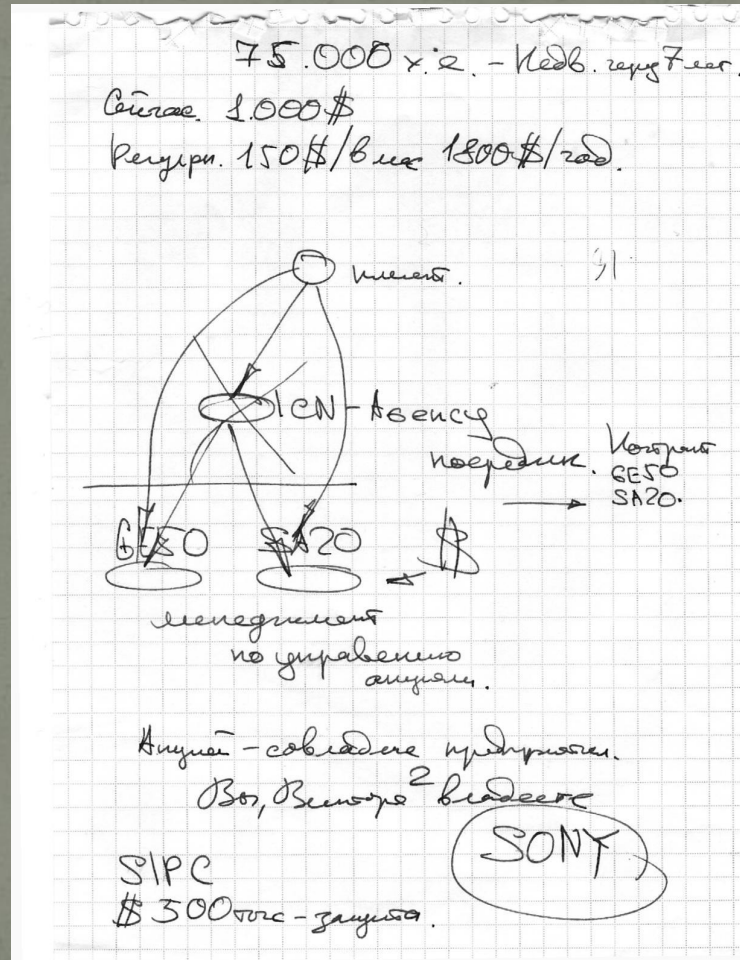 75.000 у.е. - Недв. через 7 лет.
Сейчас. 1.000$
Регулярн. 150$/в мес 1800$/год.
клиент.
ICN - Агенсу
посредник.
Контракт
GE50
SA20.
GE50 SA20 $
менеджмент
по управению
акциями.
Акцией - совладеле предприятия.
Вы, Виктор 2 владеете
SONY
SIPC
$ 500 тыс - защита.